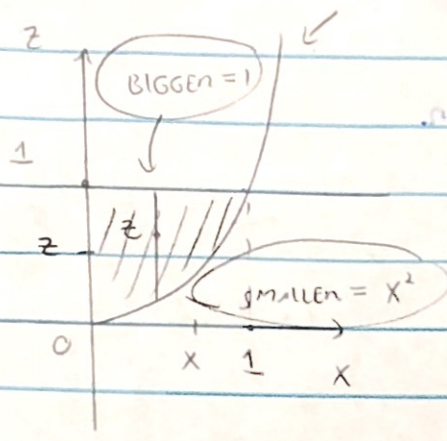 z
BIGGER = 1
1
z
z
SMALLER = x²
0
x
1
x